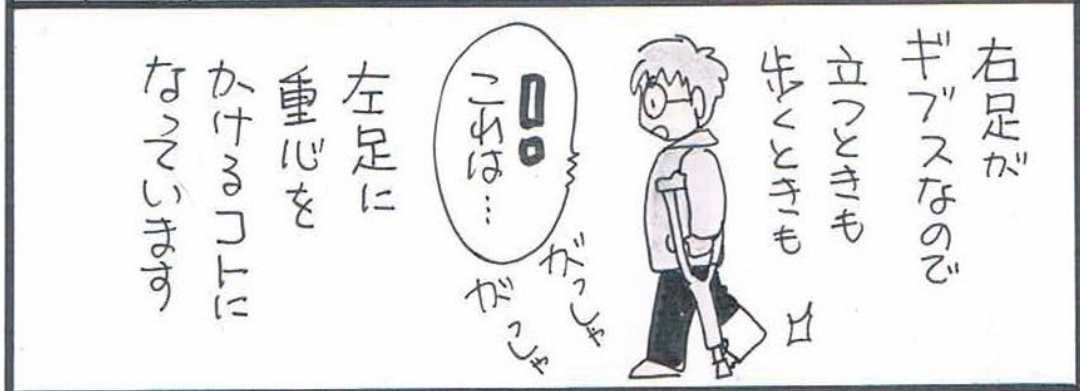 右足が
ギブスなので
立つときも
歩くときも
!
これは…
がっしゃ
がっしゃ
左足に
重心を
かけるコトに
なっています